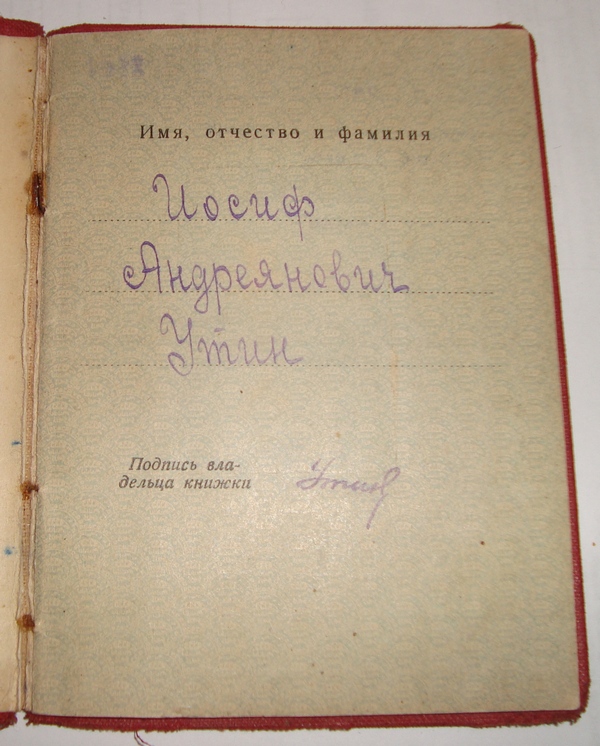 Имя, отчество и фамилия
Иосиф
Андреянович
Утин
Подпись вла-
дельца книжки
Утин